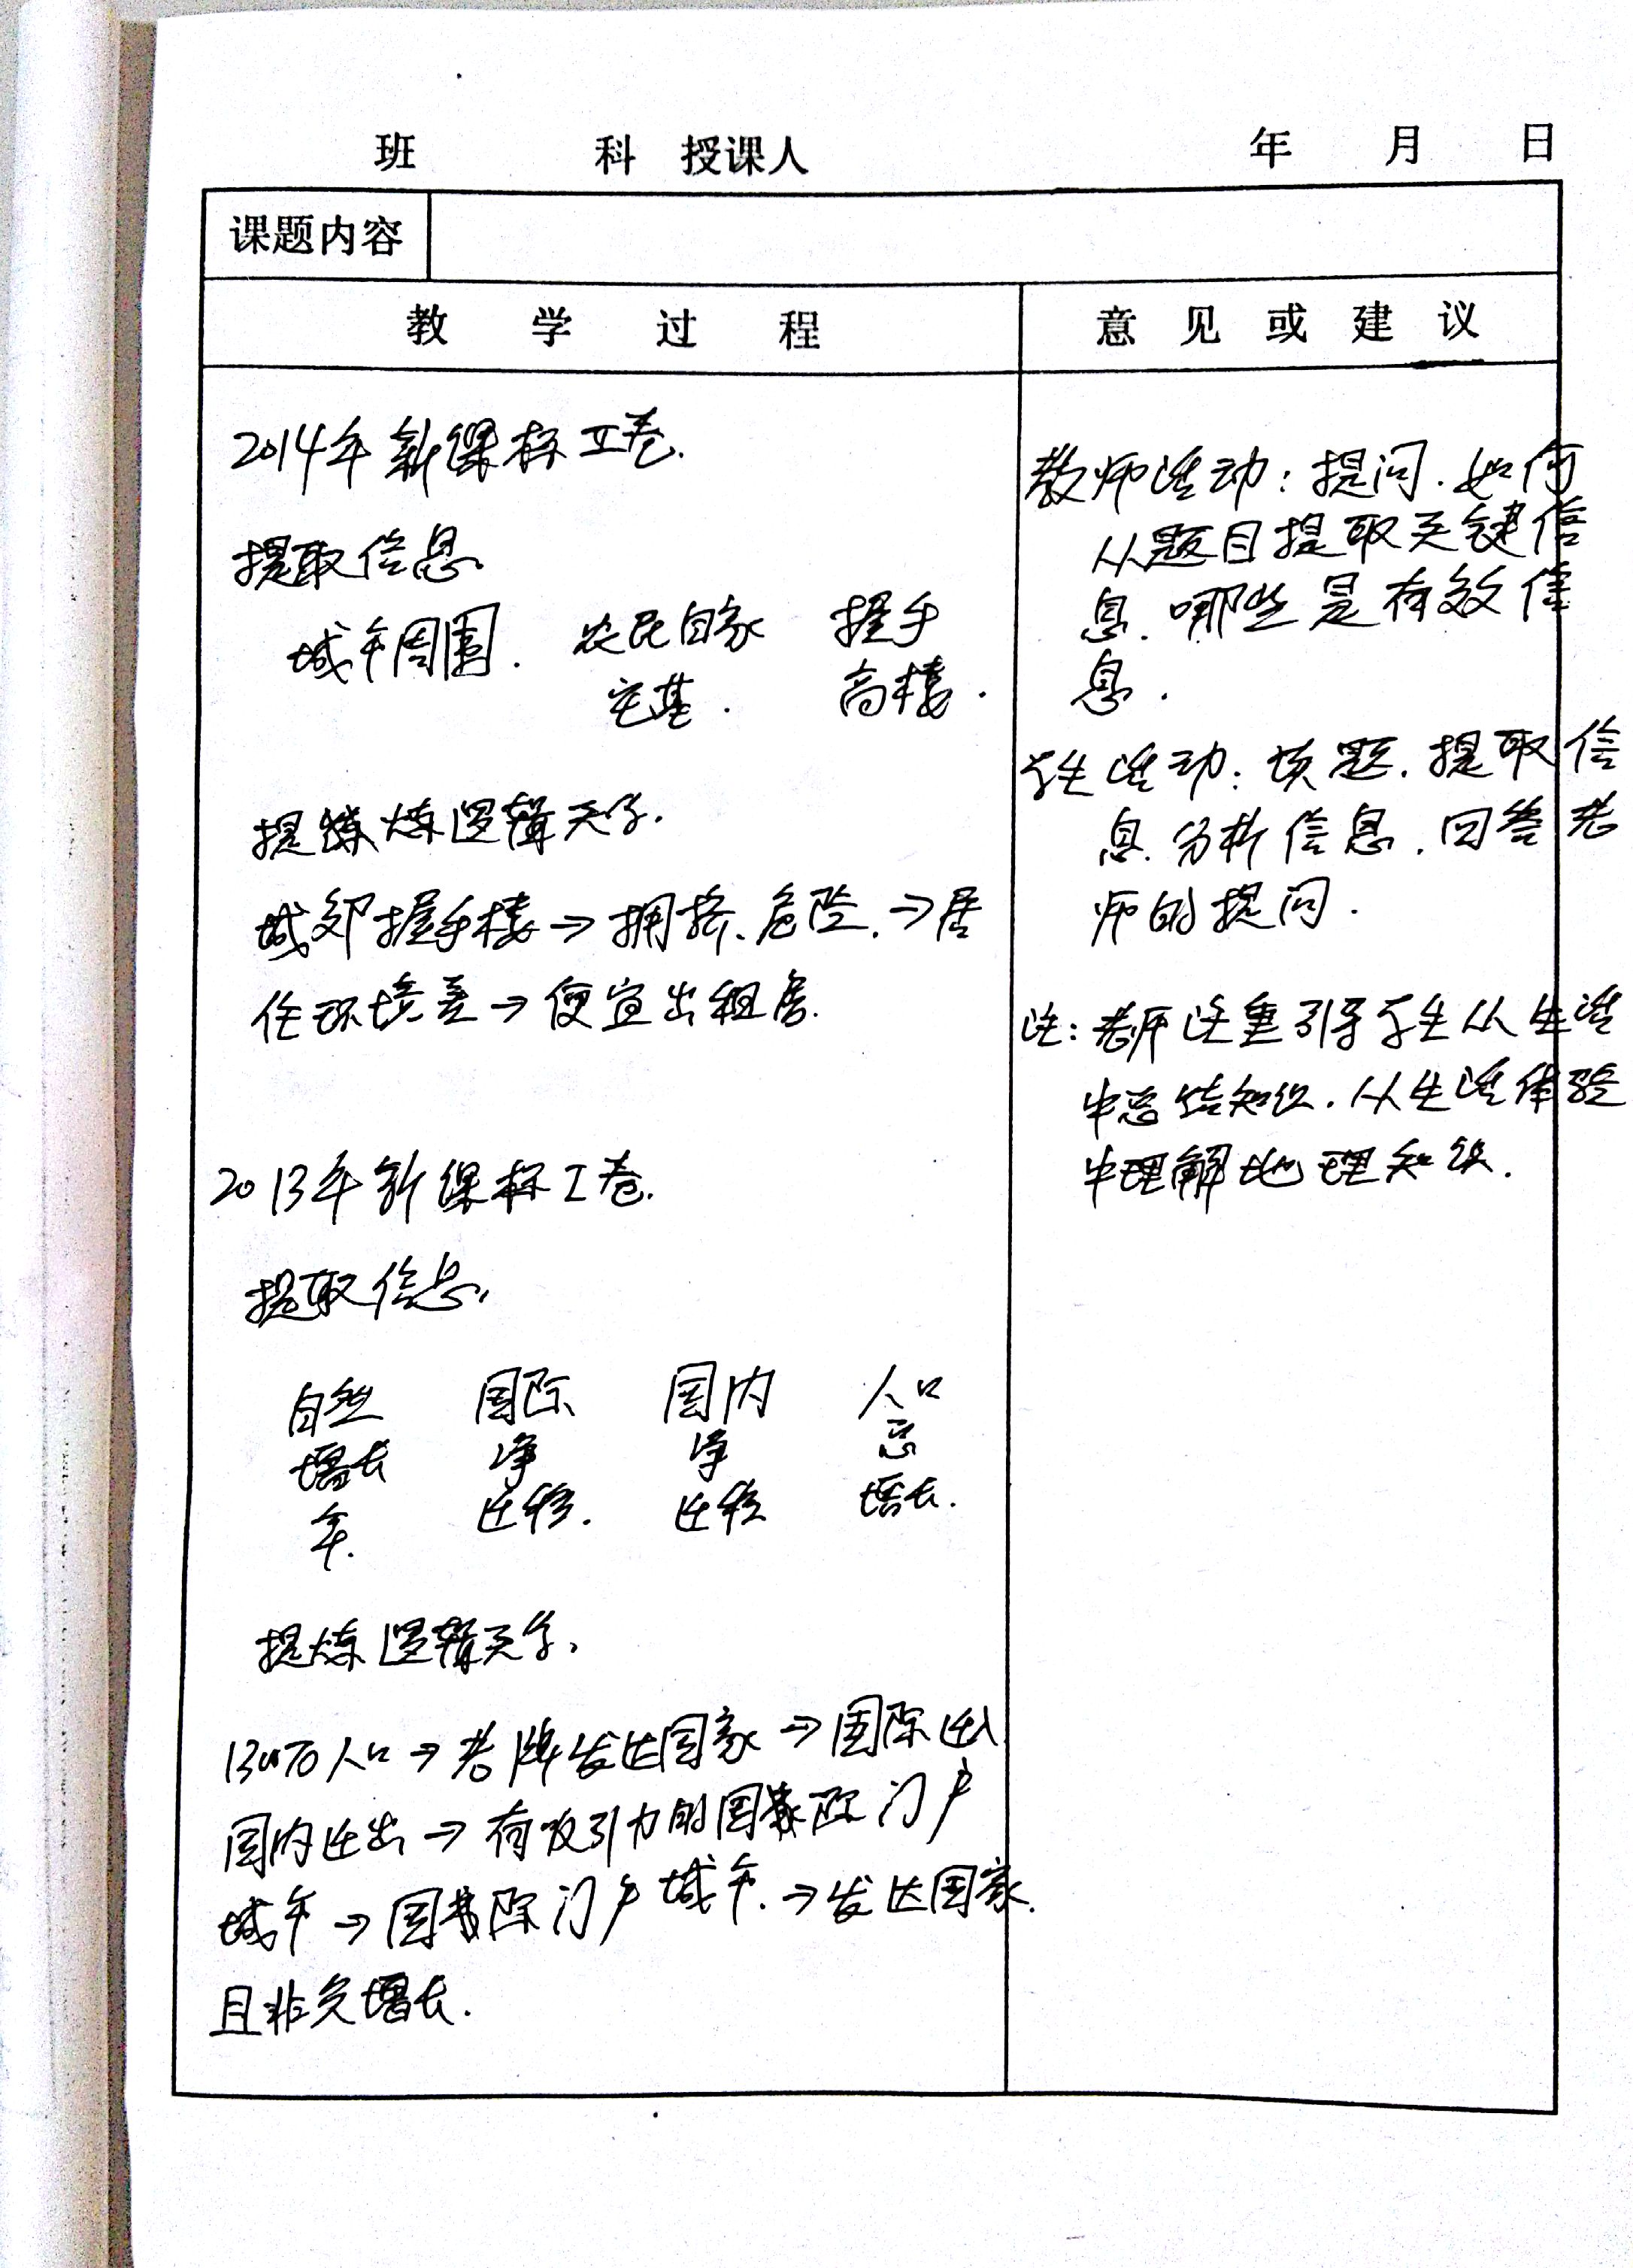 班 科 授课人 年 月 日
课题内容
教学过程
意见或建议
2014年新课标II卷.
提取信息
城市周围. 农民自家 握手
宅基. 高楼.
提炼逻辑关系.
城郊握手楼→拥挤、危险.→居
住环境差→便宜出租房.
2013年新课标I卷.
提取信息,
自然 国际 国内 人口
增长 净 净 总
率. 迁移. 迁移 增长.
提炼逻辑关系,
1300万人口→老牌发达国家→国际迁入
国内迁出→有吸引力的国际门户
城市→国际门户城市.→发达国家.
且非负增长.
教师活动:提问.如何
从题目提取关键信
息.哪些是有效信
息.
学生活动:读题.提取信
息.分析信息.回答老
师的提问.
注:老师注重引导学生从生活
中总结知识.从生活体验
中理解地理知识.